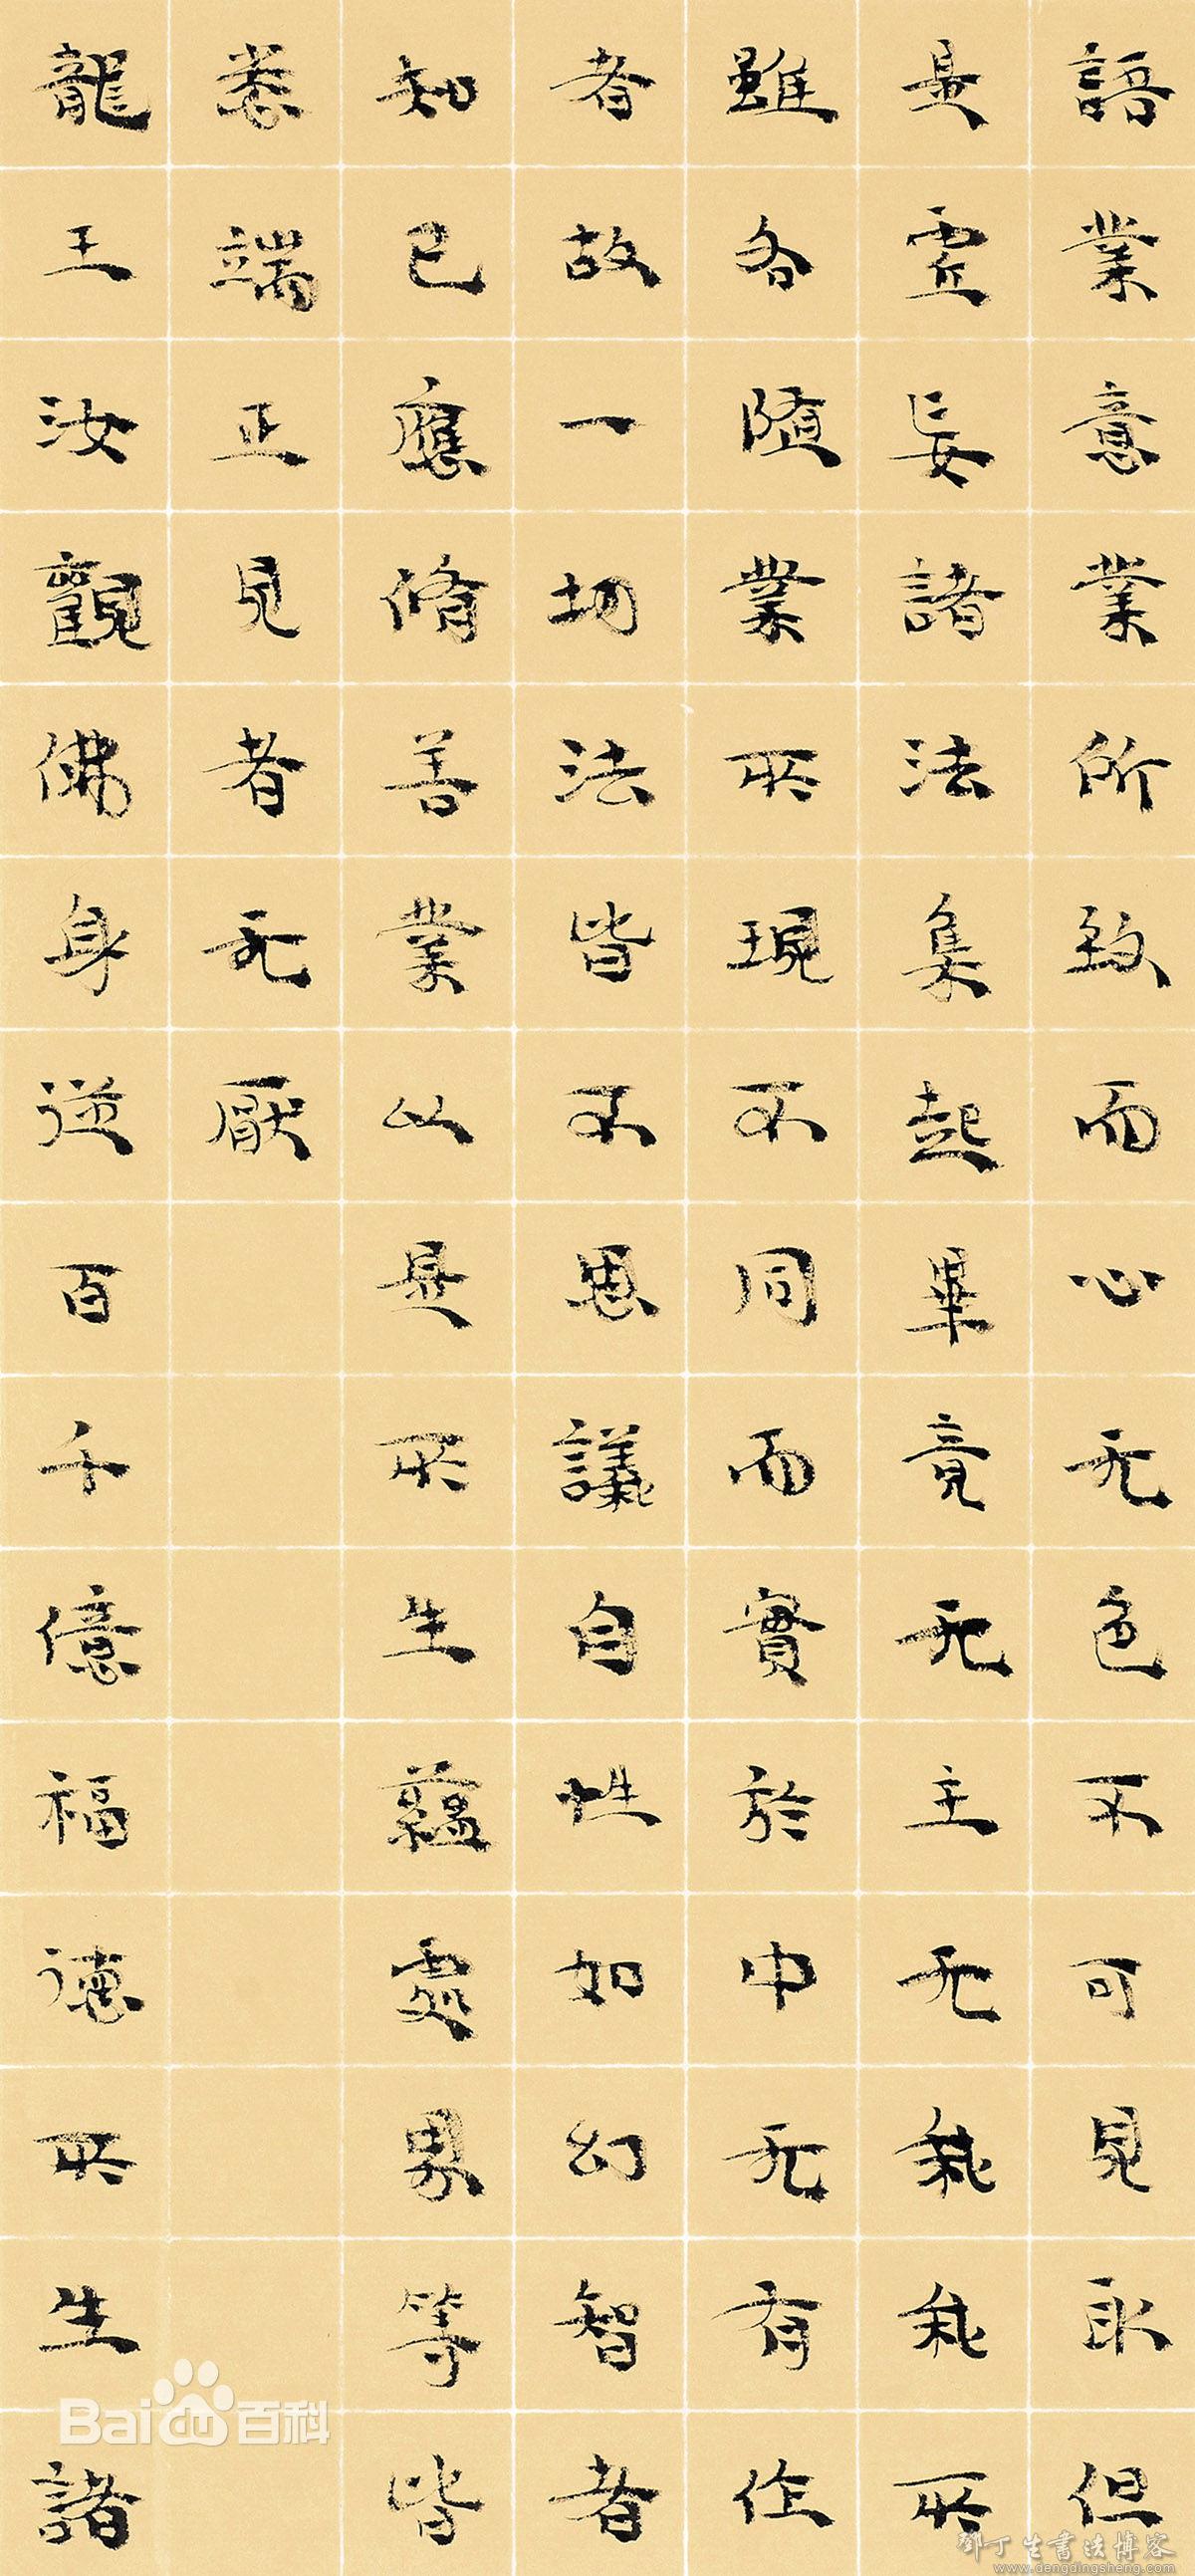 語業意業所致而心无色不可見取但
是虛妄諸法集起畢竟无主无我我所
雖各隨業所現不同而實於中无有作
者故一切法皆不思議自性如幻智者
知已應脩善業以是所生蘊處界等皆
悉端正見者无厭
龍王汝觀佛身從百千億福德所生諸
Bai du 百科
鄧丁生書法博客
www.dengdingsheng.com